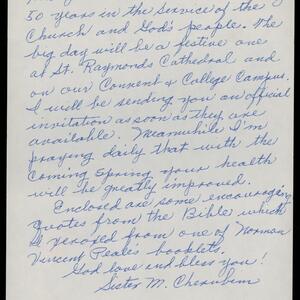 50 years in the service of the
Church and God's people. The
big day will be a festive one
at St. Raymonds Cathedral and
on our Convent & College Campus.
I will be sending you an official
invitation as soon as they are
available. Meanwhile I'm
praying daily that with the
coming Spring your health
will be greatly improved.
Enclosed are some encouraging
quotes from the Bible which
I xeroxed from one of Norman
Vincent Peale's booklets.
God love and bless you!
Sister M. Cherubim